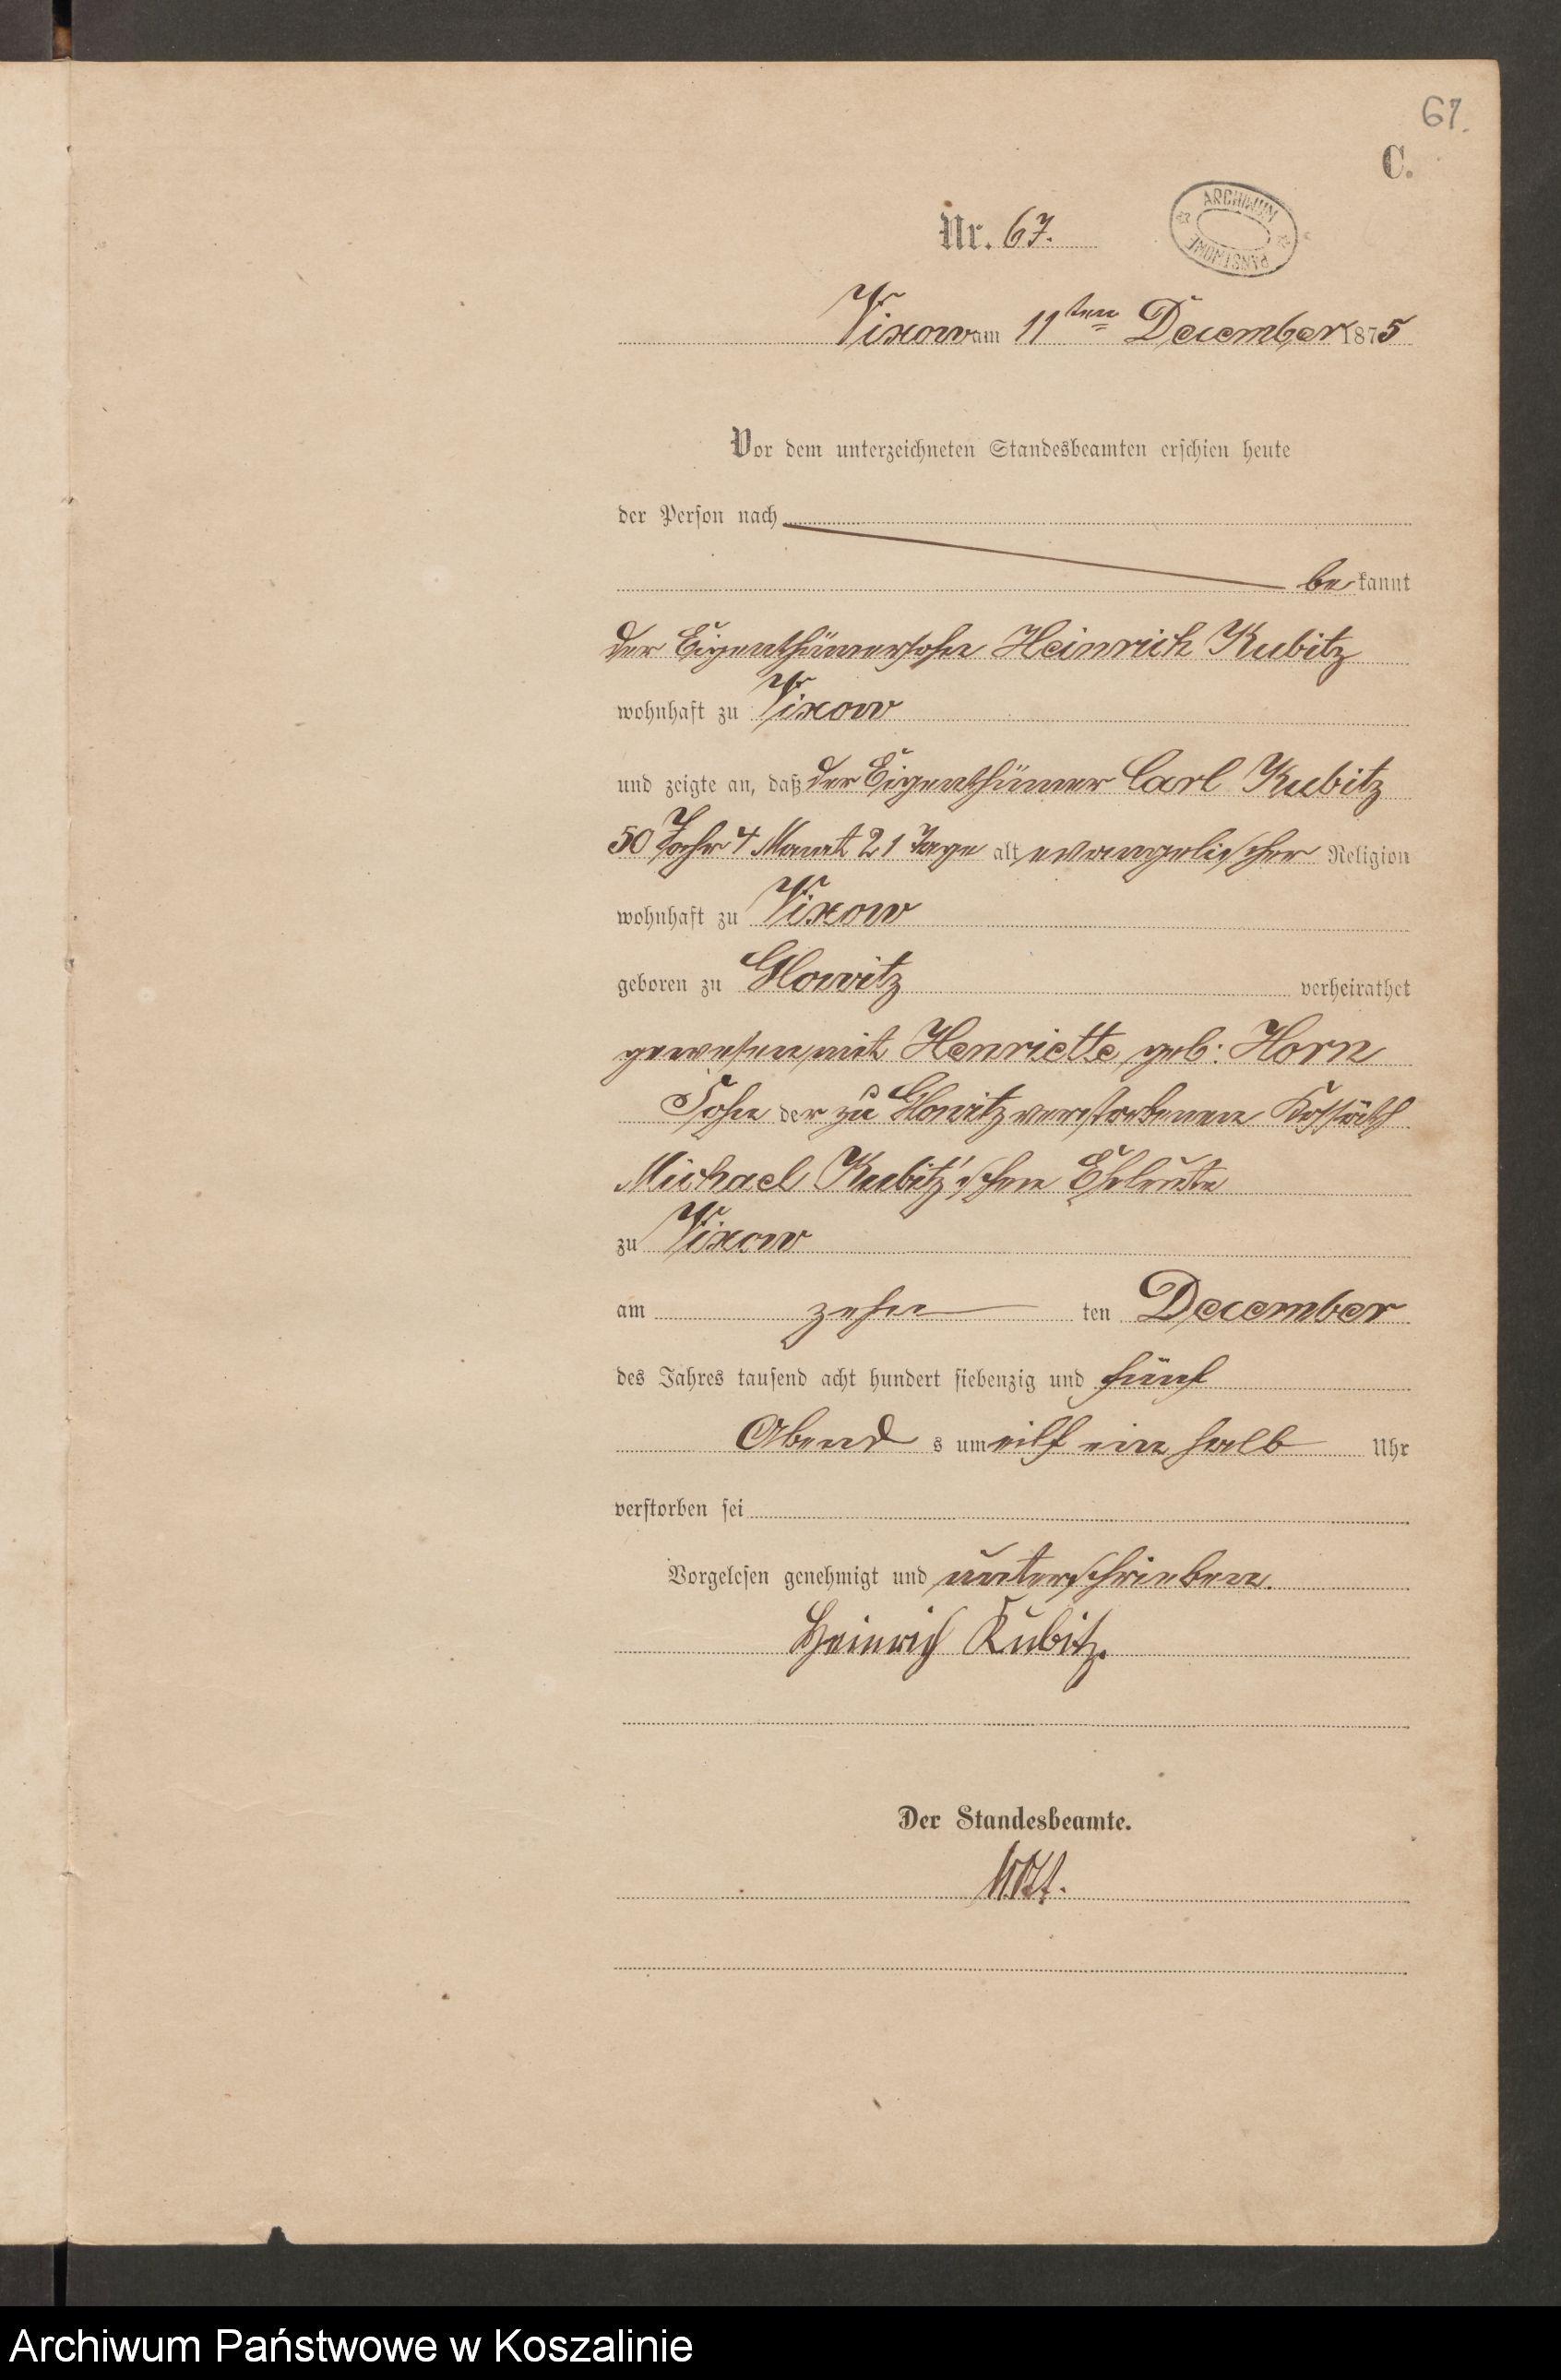 67.
C.
Nr. 67.
ARCHIWUM PAŃSTWOWE
Vixow am 11ten December 1875
Vor dem unterzeichneten Standesbeamten erschien heute
der Person nach
bekannt
der Eigenthümersohn Heinrich Kubitz
wohnhaft zu Vixow
und zeigte an, daß der Eigenthümer Carl Kubitz
50 Jahr 4 Monat 21 Tage alt evangelischer Religion
wohnhaft zu Vixow
geboren zu Glowitz verheirathet
gewesen mit Henriette geb: Horn
Sohn der zu Glowitz verstorbenen Kossäth
Michael Kubitz'schen Eheleute
zu Vixow
am zehn ten December
des Jahres tausend acht hundert siebenzig und fünf
Abend s um eilf ein halb Uhr
verstorben sei
Vorgelesen genehmigt und unterschrieben.
Heinrich Kubitz.
Der Standesbeamte.
Archiwum Państwowe w Koszalinie